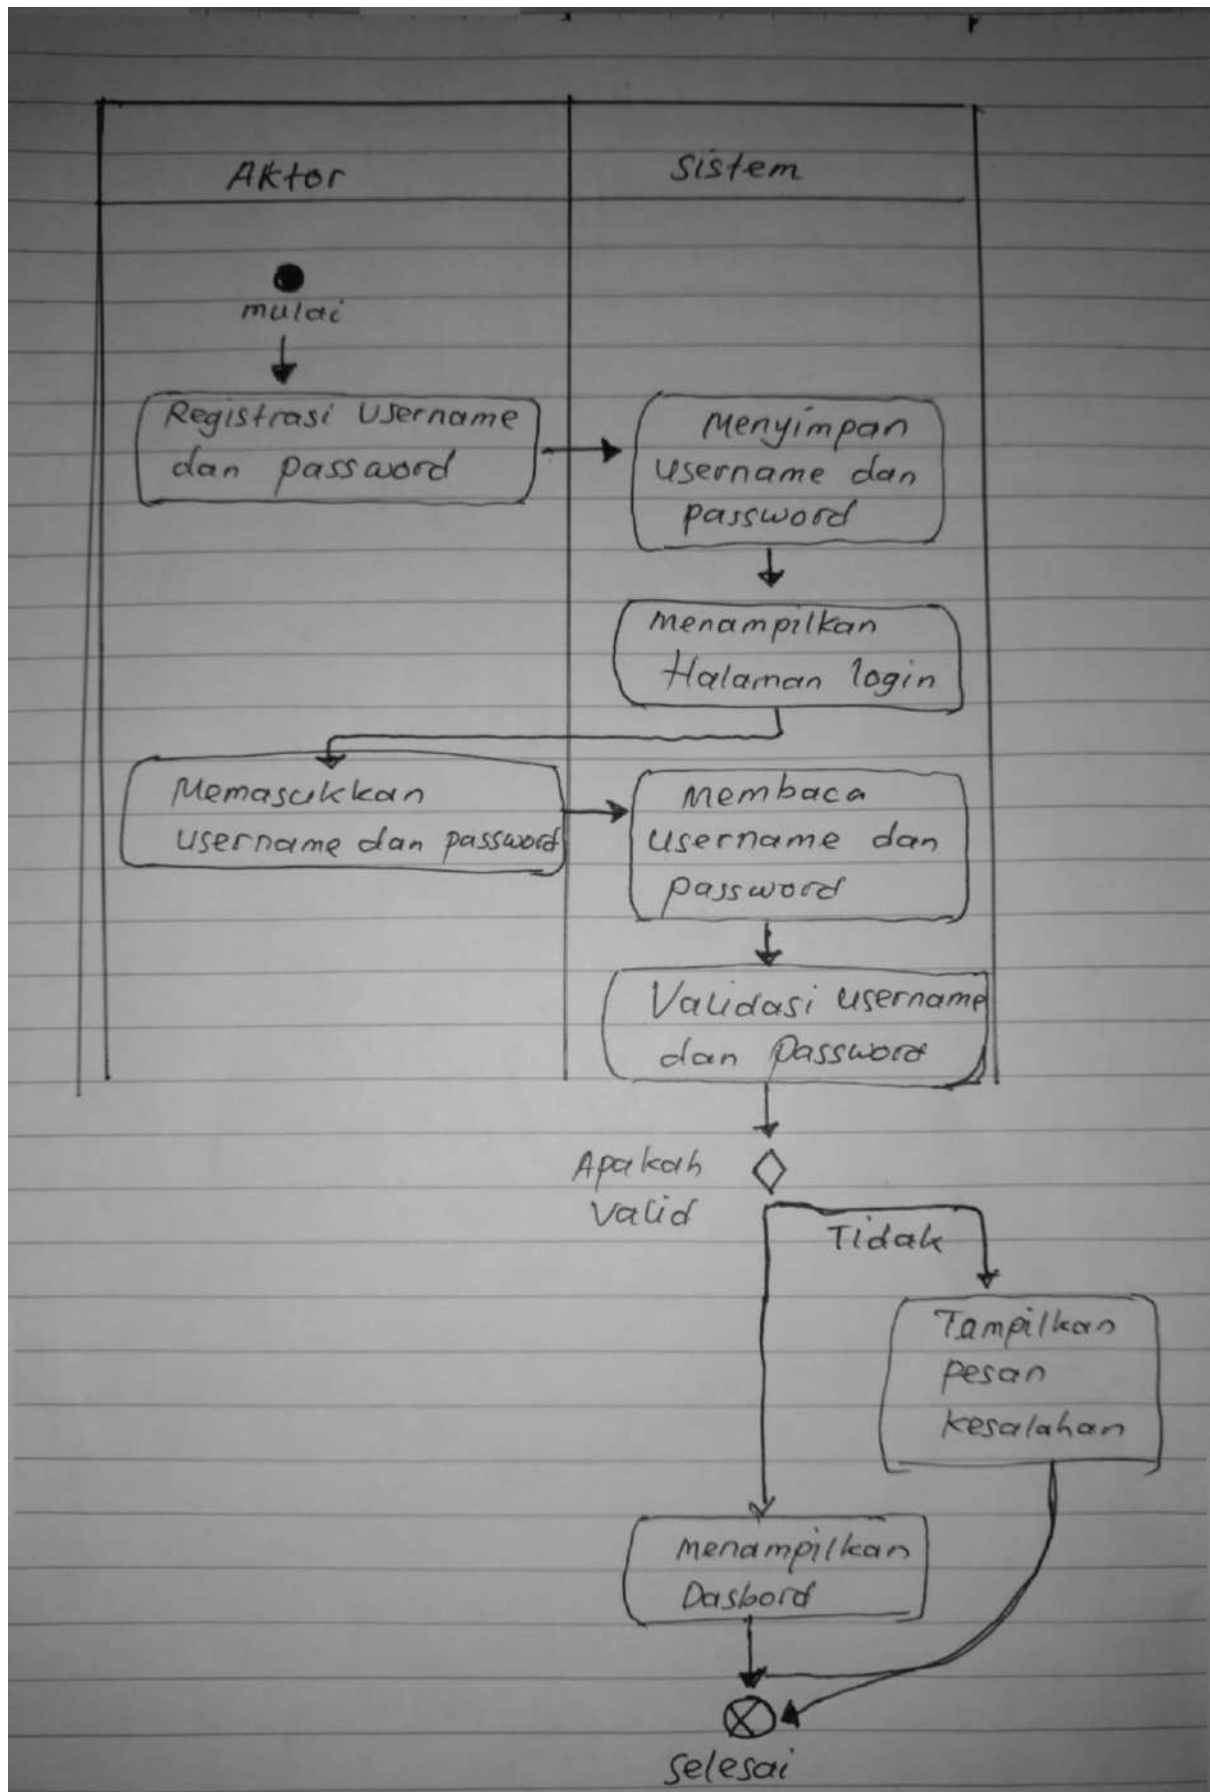 Aktor
Sistem
mulai
Registrasi Username
dan password
Menyimpan
username dan
password
Menampilkan
Halaman login
Memasukkan
username dan password
Membaca
username dan
password
Validasi username
dan password
Apakah
Valid
Tidak
Tampilkan
pesan
kesalahan
Menampilkan
Dasbord
selesai